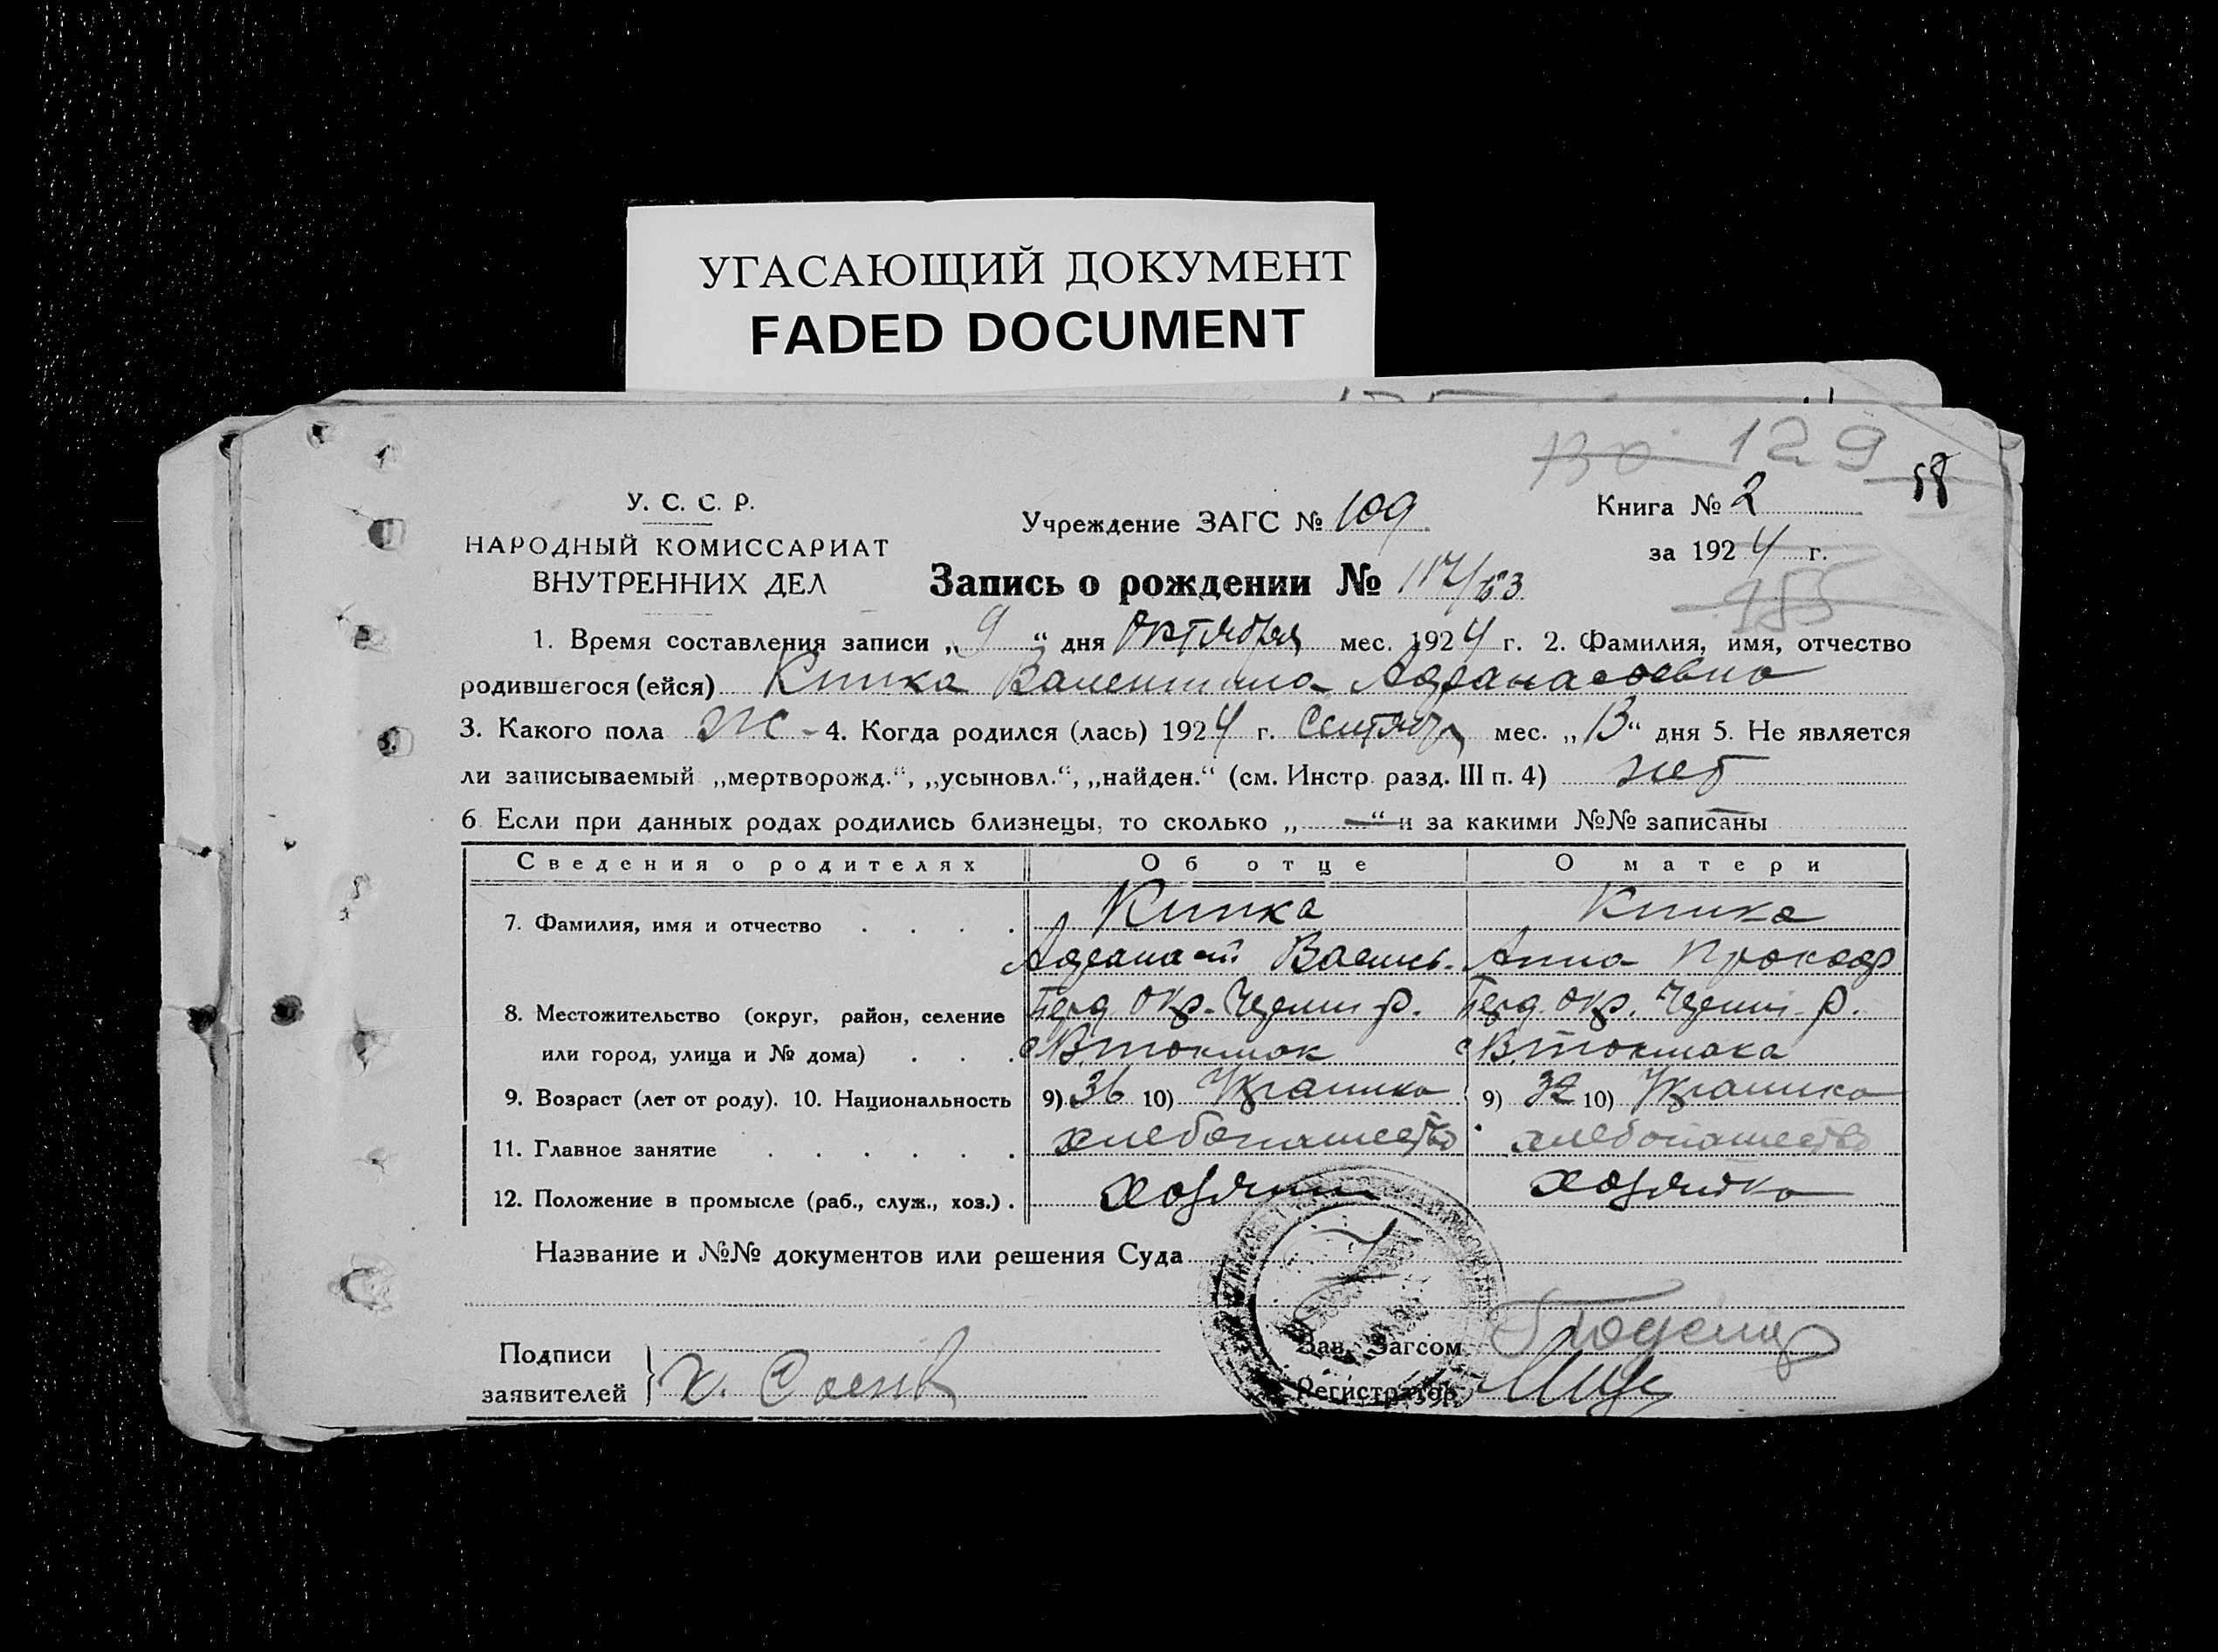 УГАСАЮЩИЙ ДОКУМЕНТ
FADED DOCUMENT
129
58
У. С. С. Р.
НАРОДНЫЙ КОМИССАРИАТ
ВНУТРЕННИХ ДЕЛ
Учреждение ЗАГС № 109
Книга № 2
за 1924 г.
Запись о рождении №
1. Время составления записи „9“ дня Октября мес. 1924 г. 2. Фамилия, имя, отчество
родившегося (ейся) Кипка Валентина Афанасовна
3. Какого пола ж - 4. Когда родился (лась) 1924 г. Сентябр мес. „13“ дня 5. Не является
ли записываемый „мертворожд.“, „усыновл.“, „найден.“ (см. Инстр. разд. III п. 4) нет
6. Если при данных родах родились близнецы, то сколько „—“ и за какими №№ записаны —
Сведения о родителях Об отце О матери
7. Фамилия, имя и отчество Кипка Кипка
Афанасий Василь. Анна Прокоф
8. Местожительство (округ, район, селение окр. р. окр. р.
или город, улица и № дома) с В.токмак с В.токмака
9. Возраст (лет от роду). 10. Национальность 9) 36 10) 9) 32 10)
11. Главное занятие хлебопашество хлебопашество
12. Положение в промысле (раб., служ., хоз.) хозяин хозяйка
Название и №№ документов или решения Суда
Подписи
заявителей
Зав. Загсом
Регистратор